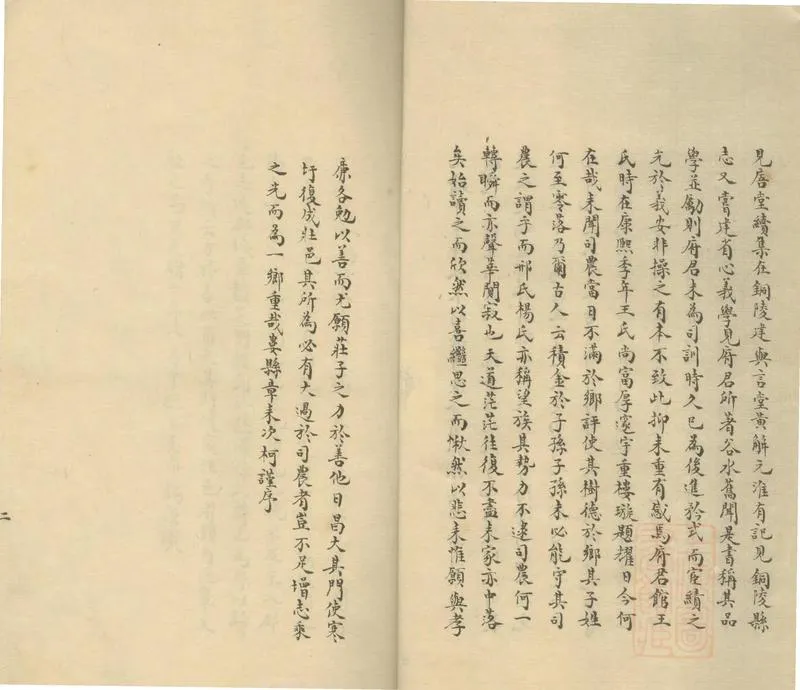 見唐堂續集在銅陵建與言堂黃解元淮有記見銅陵縣
志又嘗建省心義學見府君所著谷水舊聞是書稱其品
學並勵則府君未為司訓時久已為後進矜式而宦績之
尤於義安非操之有本不致此抑耒重有慨焉府君館王
氏時在康熙季年王氏尚富厚邃宇重樓璇題耀日今何
在哉耒聞司農當日不滿於鄉評使其樹德於鄉其子姓
何至零落乃爾古人云積金於子孫子孫未必能守其司
農之謂乎而邢氏楊氏亦稱望族其勢力不逮司農何一
轉瞬而亦聲華闃寂也天道茫茫往復不盡耒家亦中落
矣始讀之而欣然以喜繼思之而愀然以悲耒惟願與孝
廉各勉以善而尤願莊子之力於善他日昌大其門使寒
圩復成壯邑其所為必有大過於司農者豈不足增志乘
之光而為一鄉重哉婁縣章耒次柯謹序
二